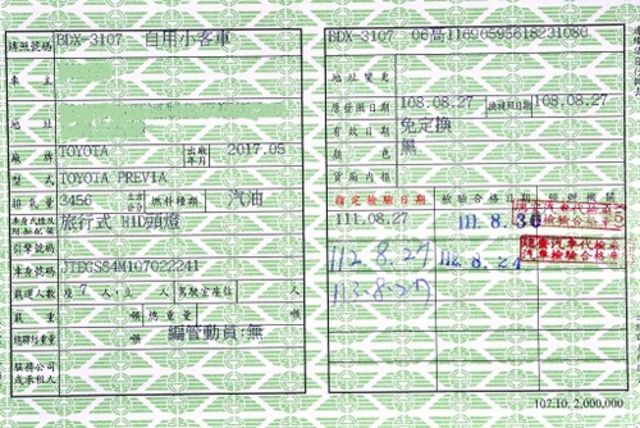 牌照號碼 BDX-3107 自用小客車
車主
地址
廠牌 TOYOTA 出廠年月 2017.05
型式 TOYOTA PREVIA
排氣量 3456 立方公分 燃料種類 汽油
車身式樣及附加配備 旅行式 HID頭燈
引擎號碼
車身號碼 JTEGS54M107022241
載運人數 座 7 人,立 人 駕駛室座位 人
載重 噸 總重量 噸
噸 編管動員:無
服務公司或承租人
BDX-3107 06高11690595618231080
地址變更
原發照日期 108.08.27 換補照日期 108.08.27
有效日期 免定換
顏色 黑
貨廂內框
指定檢驗日期 檢驗合格日期 經辦機關
111.08.27 111.8.30 汽車代檢 檢驗合格章
112.8.27 112.8.21 汽車代檢 汽車檢驗合格章
113.8.27
107.10. 2,000,000